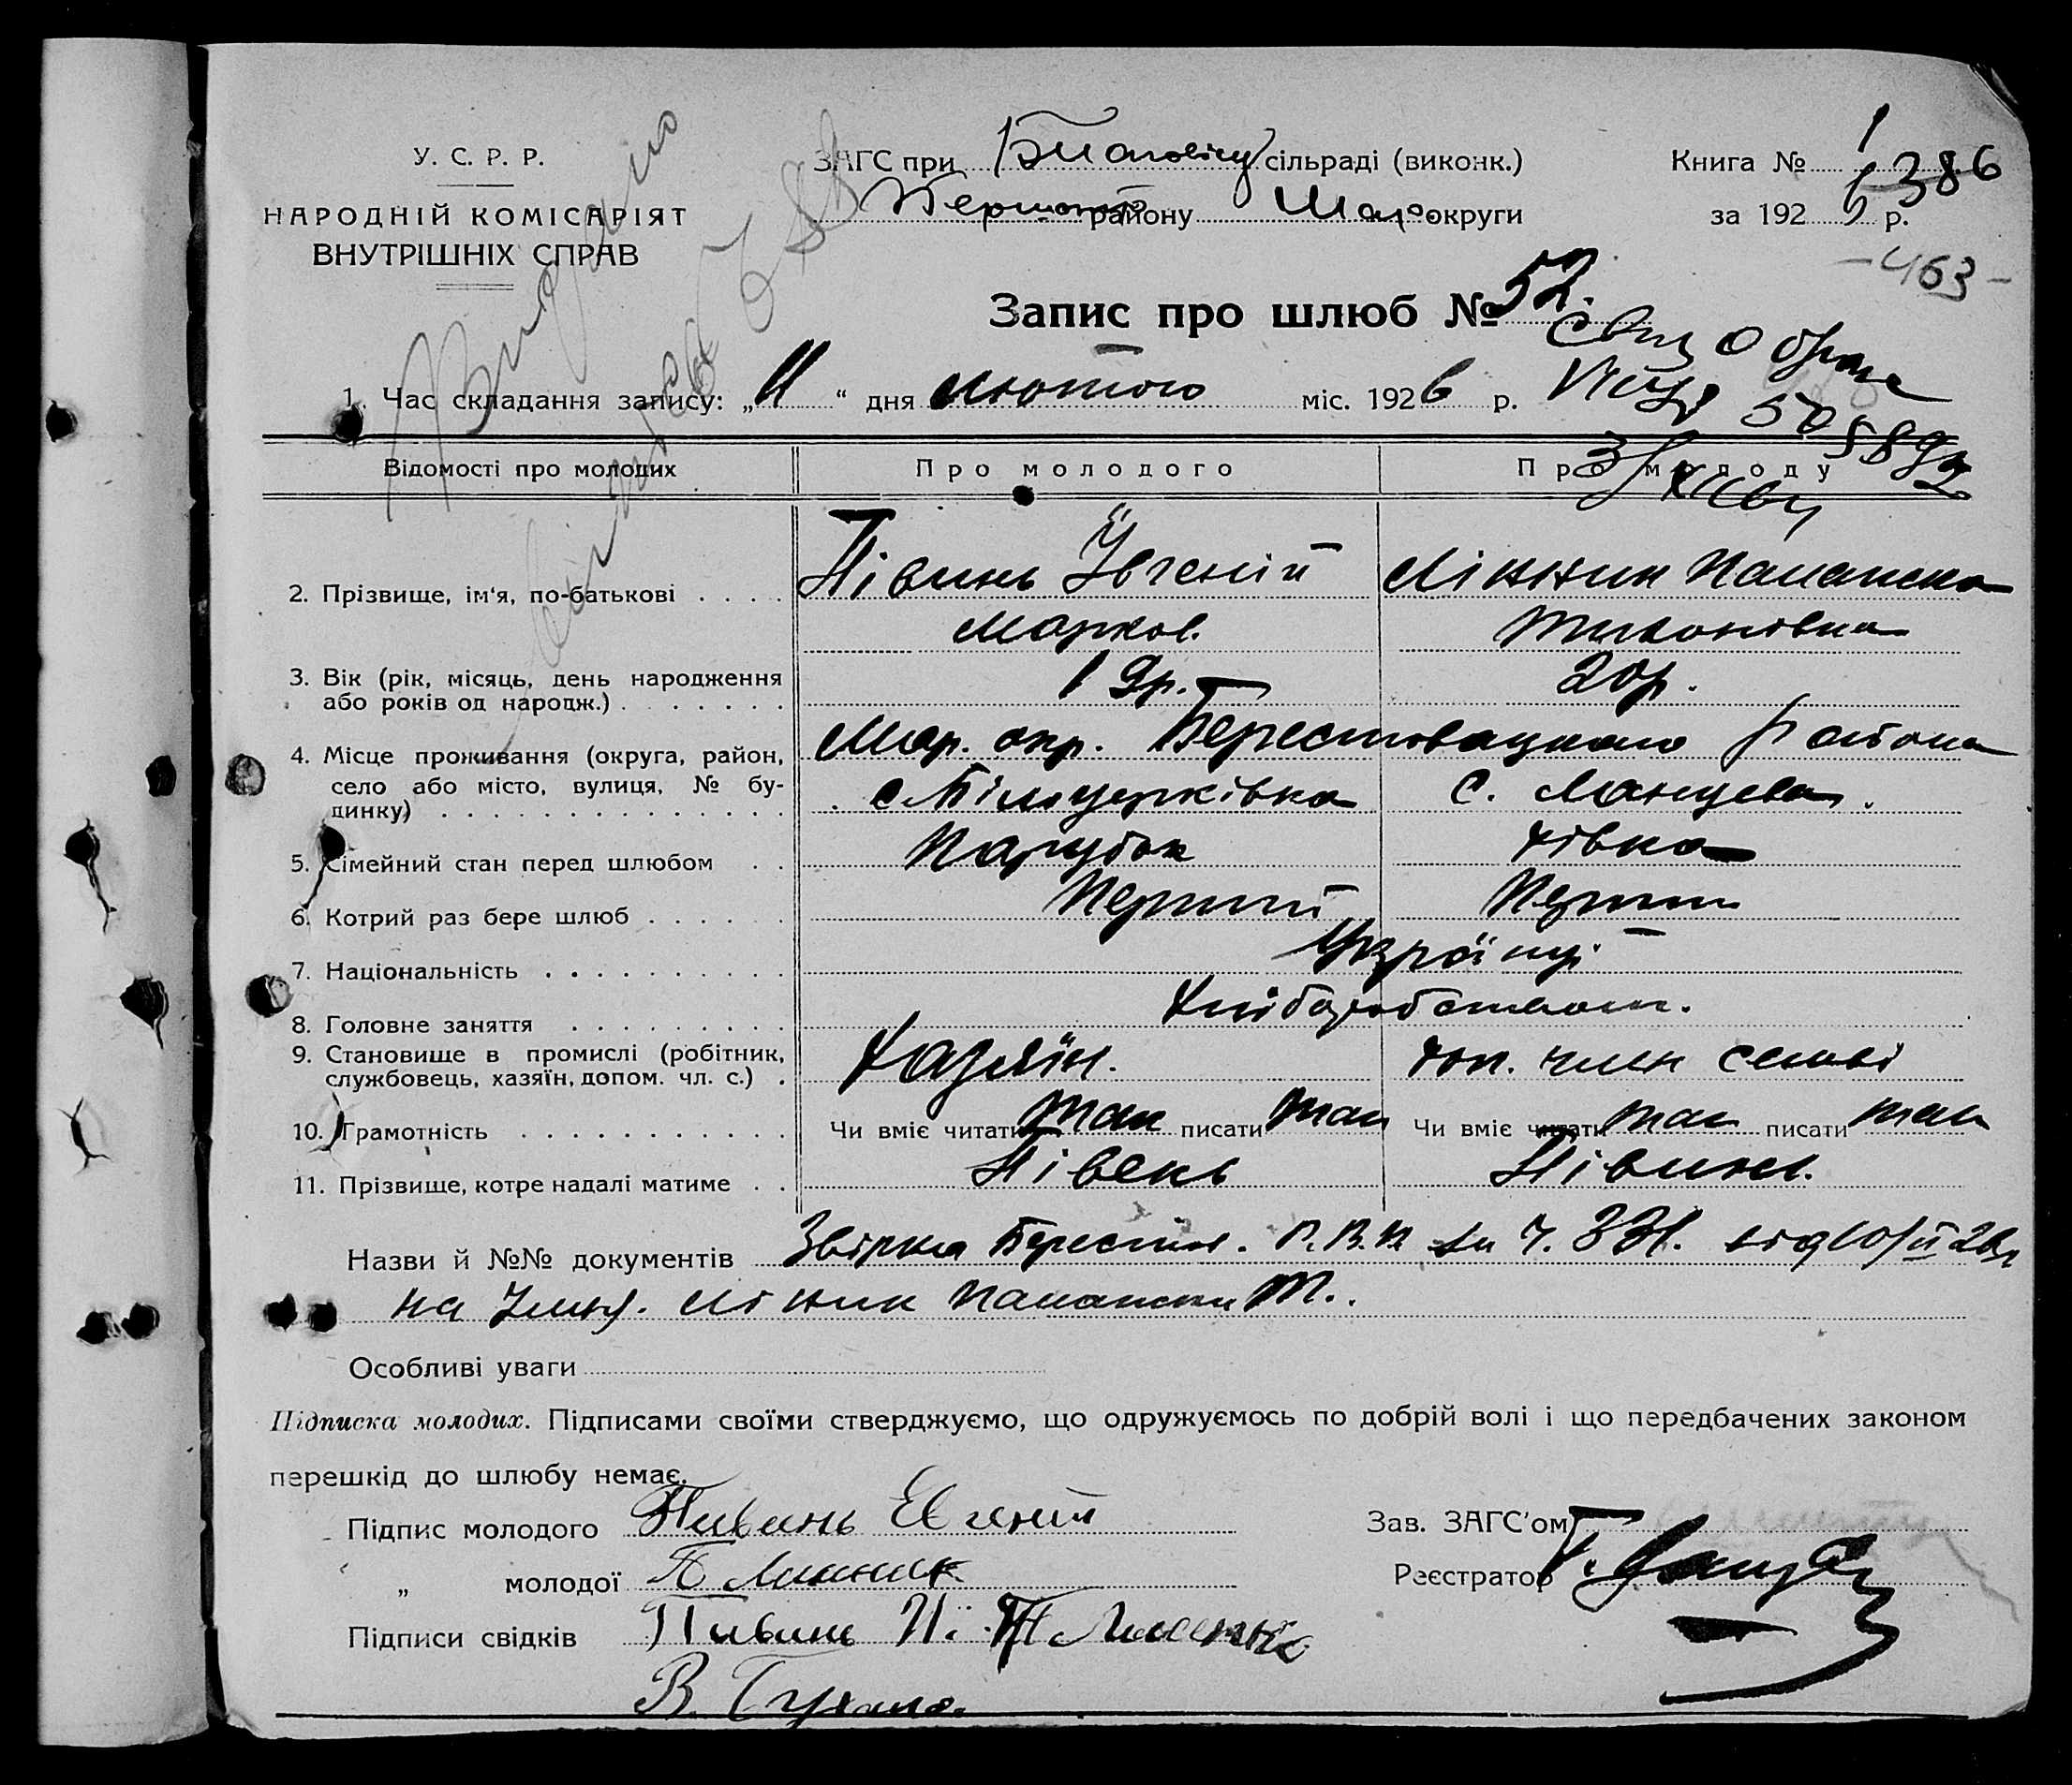 У. С. Р. Р.
НАРОДНІЙ КОМІСАРІЯТ
ВНУТРІШНІХ СПРАВ
ЗАГС при сільраді (виконк.)
району Мар. округи
Книга № 1 386
за 1926 р.
- 463 -
Видано
Запис про шлюб № 52.
1. Час складання запису: „11“ дня лютого міс. 1926 р.
Відомості про молодих Про молодого Про молоду
2. Прізвище, ім'я, по-батькові . . . . Півинь Івгеній Лінник Палашка
Марков. Тихоновна
3. Вік (рік, місяць, день народження 19р. 20р.
або років од народж.) . . . . . . .
4. Місце проживання (округа, район, Мар. окр. Берестовацкого района
село або місто, вулиця, № бу- с. Білоцерківка с. Ланцева.
динку) . . . . . . . . . . . . . .
5. Сімейний стан перед шлюбом . . Парубок дівка
6. Котрий раз бере шлюб . . . . . Перший Перший
7. Національність . . . . . . . . . . Українці
8. Головне заняття . . . . . . . . . Хліборобством.
9. Становище в промислі (робітник, Хазяїн. доп. член семьї
службовець, хазяїн, допом. чл. с.) .
10. Грамотність . . . . . . . . . . . Чи вміє читати так писати так Чи вміє читати так писати так
11. Прізвище, котре надалі матиме . . Півень Півинь.
Назви й №№ документів Р.В.К за Ч. 331. від 10/II 26р
на Лінник Палашки Т.
Особливі уваги
Підписка молодих. Підписами своїми стверджуємо, що одружуємось по добрій волі і що передбачених законом
перешкід до шлюбу немає.
Підпис молодого Пивинь Евгений
„ молодої П Линник
Підписи свідків Пивинь И.
В.
Зав. ЗАГС'ом
Реєстратор